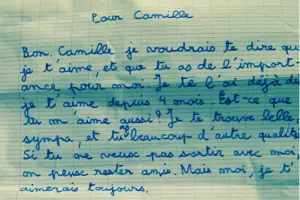 Pour Camille
Bon. Camille je voudrais te dire que
je t'aime, et que tu as de l'import-
ance, pour moi. Je te l'ai déjà di
je t'aime depuis 4 mois. Est-ce que
tu m'aime aussi? Je te trouve belle,
sympa, et tu beaucoup d'autre qualit
Si tu ne veux pas sortir avec moi,
on peux rester amis. Mais moi, je t'
aimerais toujours.